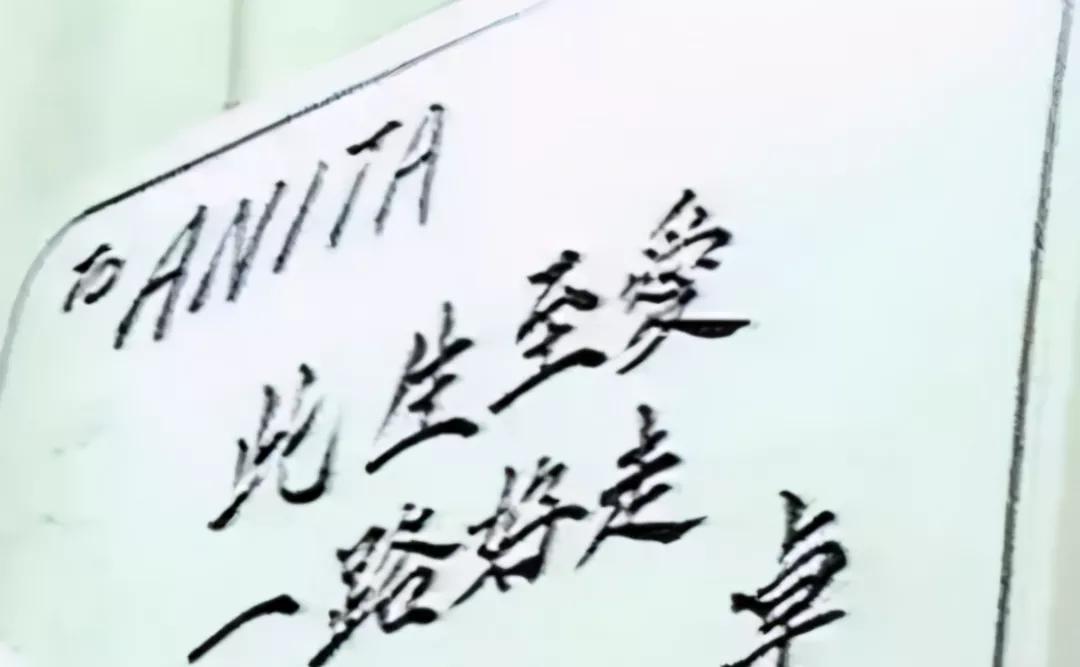 TO ANITA
此生至爱
一路好走
卓